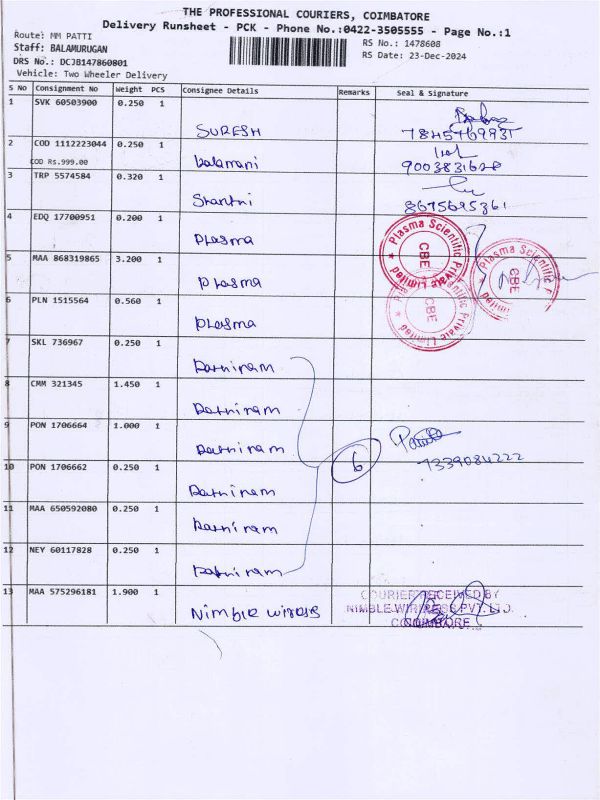 THE PROFESSIONAL COURIERS, COIMBATORE
Delivery Runsheet - PCK - Phone No.:0422-3505555 - Page No.:1
Route: MM PATTI
RS No.: 1478608
Staff: BALAMURUGAN
RS Date: 23-Dec-2024
DRS No.: DCJB147860801
Vehicle: Two Wheeler Delivery
S No Consignment No Weight PCS Consignee Details Remarks Seal & Signature
1 SVK 60503900 0.250 1
SURESH 7845769935
2 COD 1112223044 0.250 1
COD Rs.999.00 balamani 9003831628
3 TRP 5574584 0.320 1
Shanthi 8675695361
4 EDQ 17700951 0.200 1
Plasma
Plasma Scientific Private Limited
CBE
Plasma Scientific
CBE
5 MAA 868319865 3.200 1
Plasma
Private Limited
CBE
6 PLN 1515564 0.560 1
Plasma
7 SKL 736967 0.250 1
Rathiram
8 CMM 321345 1.450 1
Rathiram
9 PON 1706664 1.000 1
Rathiram 6 7339084222
10 PON 1706662 0.250 1
Rathiram
11 MAA 650592080 0.250 1
Rathiram
12 NEY 60117828 0.250 1
Rathiram
13 MAA 575296181 1.900 1
Nimble wireless
COURIER RECEIVED BY
NIMBLE WIRELESS PVT. LTD.
COIMBATORE